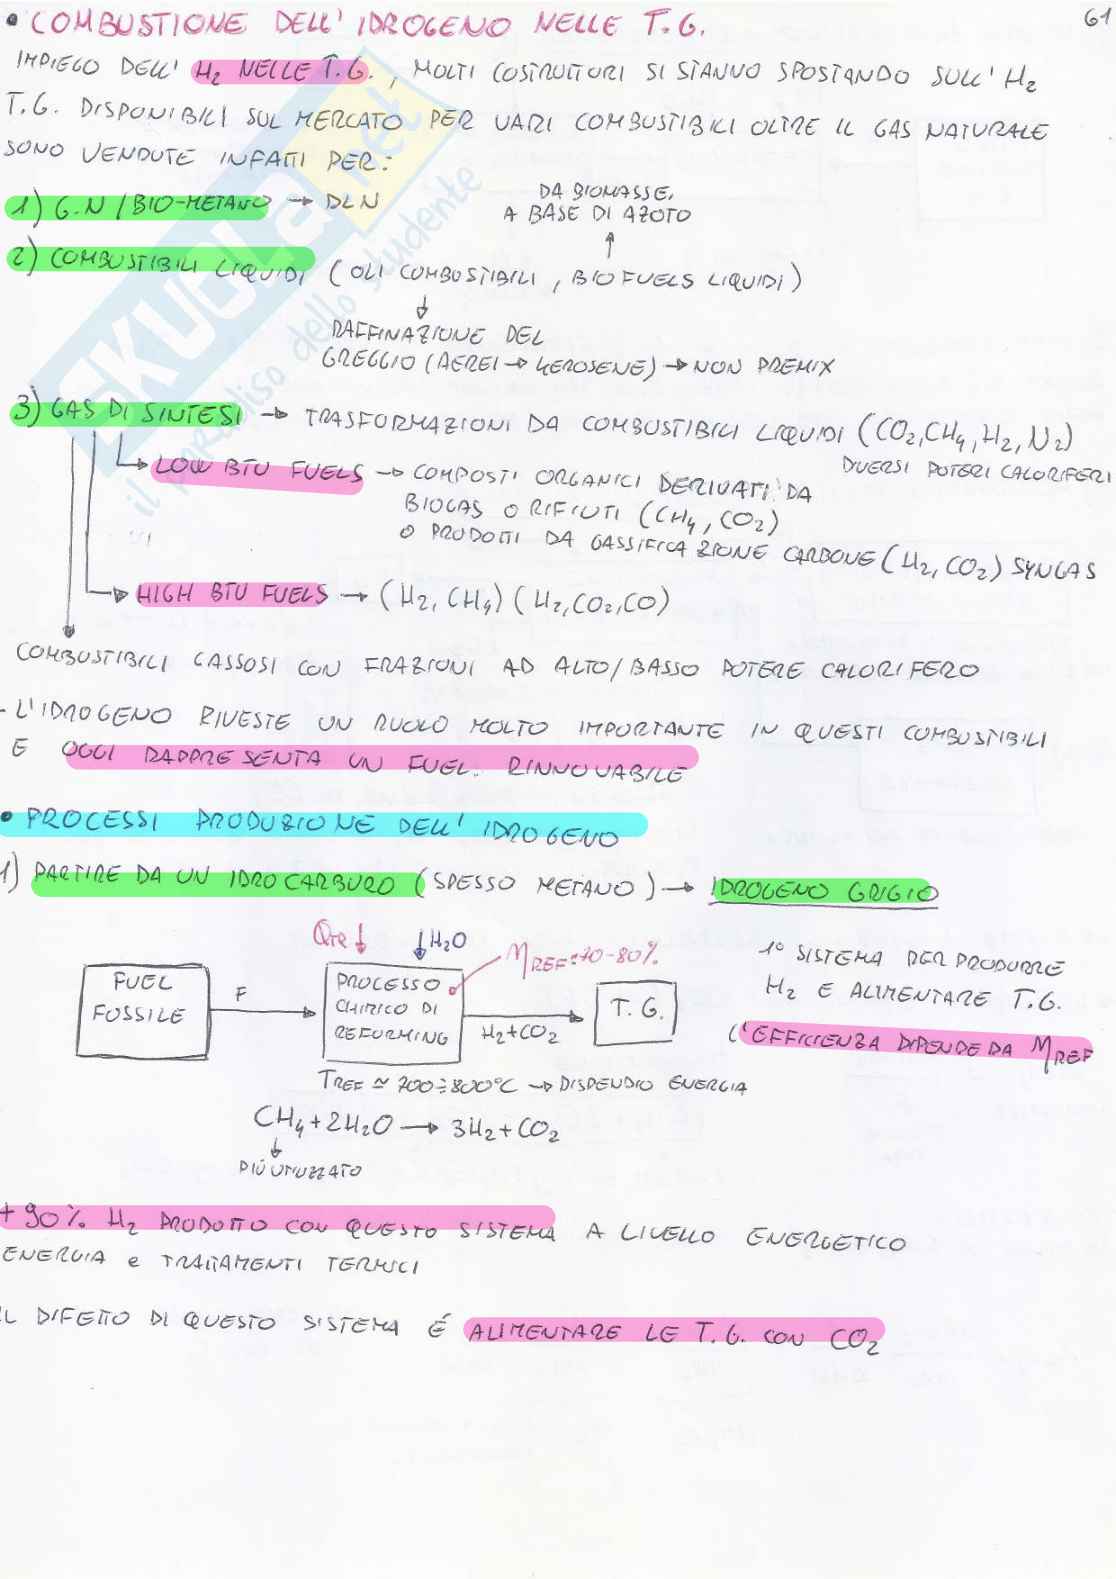 61
• COMBUSTIONE DELL' IDROGENO NELLE T.G.
IMPIEGO DELL' H2 NELLE T.G., MOLTI COSTRUTTORI SI STANNO SPOSTANDO SULL' H2
T.G. DISPONIBILI SUL MERCATO PER VARI COMBUSTIBILI OLTRE IL GAS NATURALE
SONO VENDUTE INFATTI PER:
1) G.N/BIO-METANO → DLN
DA BIOMASSE,
A BASE DI AZOTO
2) COMBUSTIBILI LIQUIDI (OLI COMBUSTIBILI, BIOFUELS LIQUIDI)
RAFFINAZIONE DEL
GREGGIO (AEREI → KEROSENE) → NON PREMIX
3) GAS DI SINTESI → TRASFORMAZIONI DA COMBUSTIBILI LIQUIDI (CO2, CH4, H2, N2)
DIVERSI POTERI CALORIFERI
LOW BTU FUELS → COMPOSTI ORGANICI DERIVATI DA
BIOGAS O RIFIUTI (CH4, CO2)
O PRODOTTI DA GASSIFICAZIONE CARBONE (H2, CO2) SYNGAS
HIGH BTU FUELS → (H2, CH4) (H2, CO2, CO)
COMBUSTIBILI GASSOSI CON FRAZIONI AD ALTO/BASSO POTERE CALORIFERO
- L'IDROGENO RIVESTE UN RUOLO MOLTO IMPORTANTE IN QUESTI COMBUSTIBILI
E OGGI RAPPRESENTA UN FUEL RINNOVABILE
• PROCESSI PRODUZIONE DELL' IDROGENO
1) PARTIRE DA UN IDROCARBURO (SPESSO METANO) → IDROGENO GRIGIO
QTR ↓ ↓ H2O
ηREF = 70-80%
FUEL
FOSSILE
F
PROCESSO
CHIMICO DI
REFORMING
H2+CO2
T.G.
1° SISTEMA PER PRODURRE
H2 E ALIMENTARE T.G.
L'EFFICIENZA DIPENDE DA ηREF
TREF ≃ 700÷800°C → DISPENDIO ENERGIA
CH4 + 2H2O → 3H2 + CO2
PIÙ UTILIZZATO
+ 90% H2 PRODOTTO CON QUESTO SISTEMA A LIVELLO ENERGETICO
ENERGIA e TRATTAMENTI TERMICI
IL DIFETTO DI QUESTO SISTEMA É ALIMENTARE LE T.G. CON CO2
SKUOLA.net
il paradiso dello studente